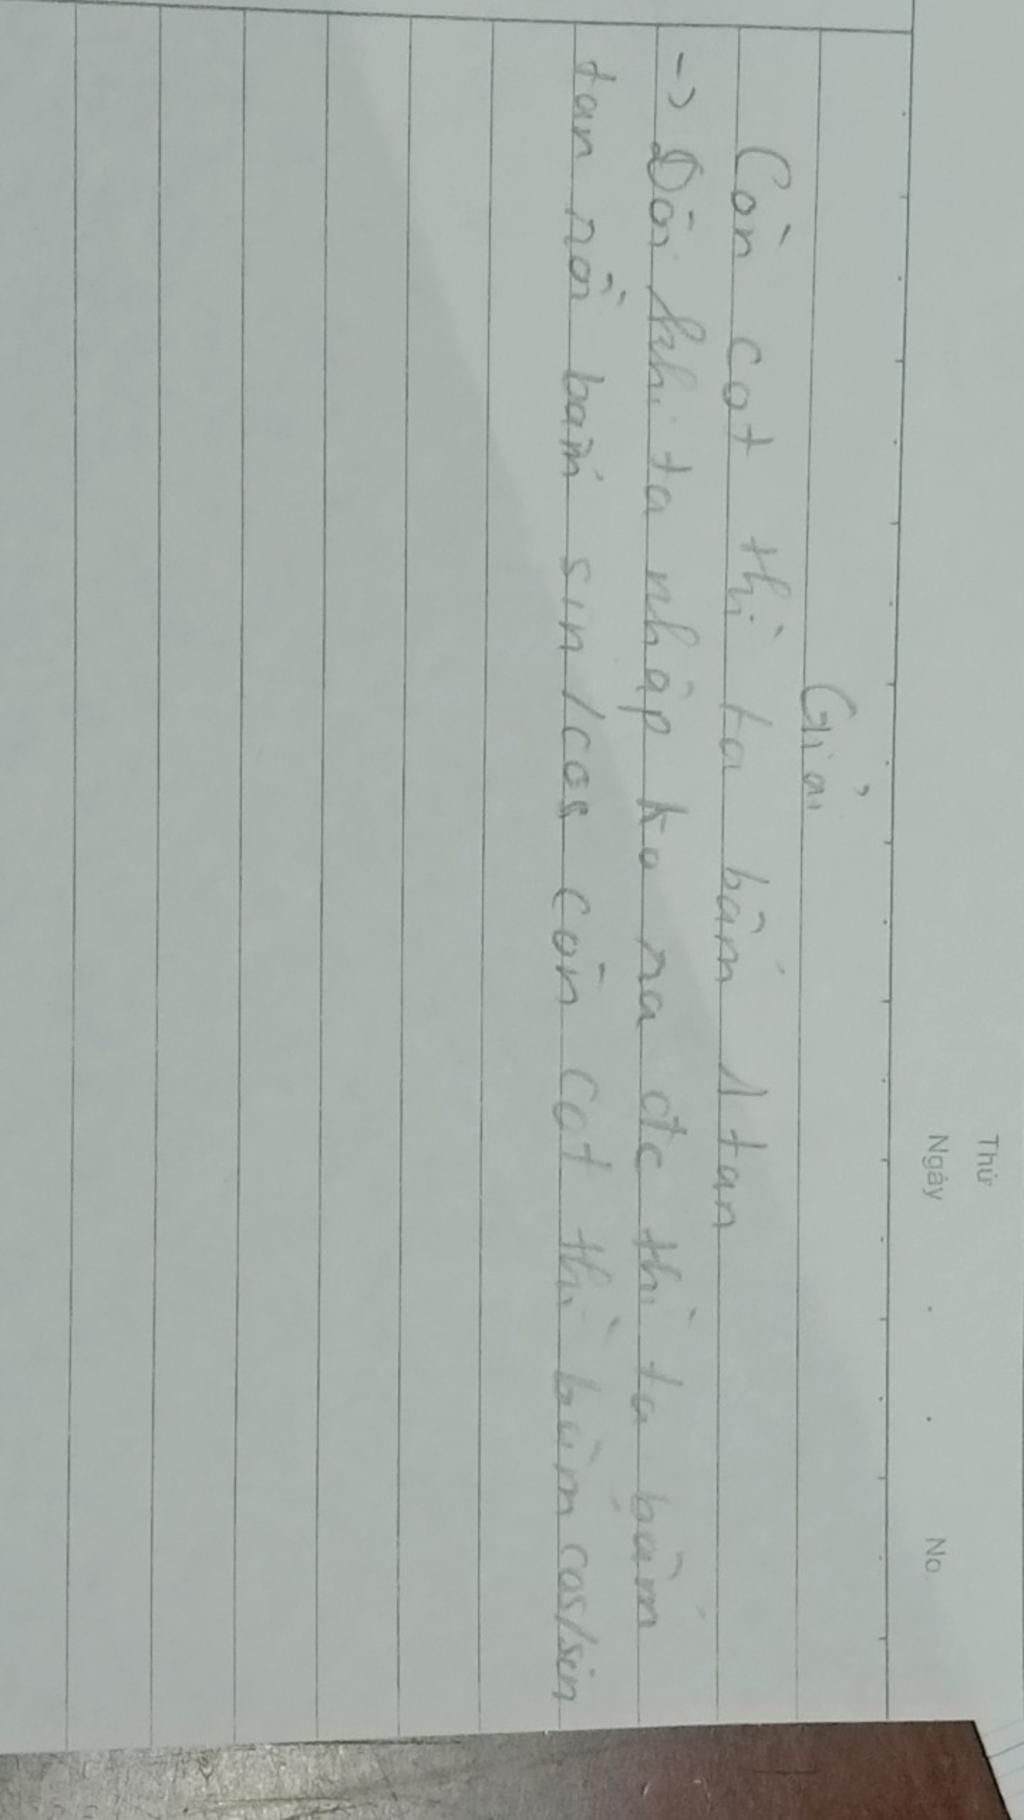 Thứ
Ngày . . No.
Giải
Còn cot thì ta bấm 1 tan
-> Đôi khi ta nhập ko na đc thì ta bấm
tan rồi bấm sin/cos còn cot thì bấm cos/sin